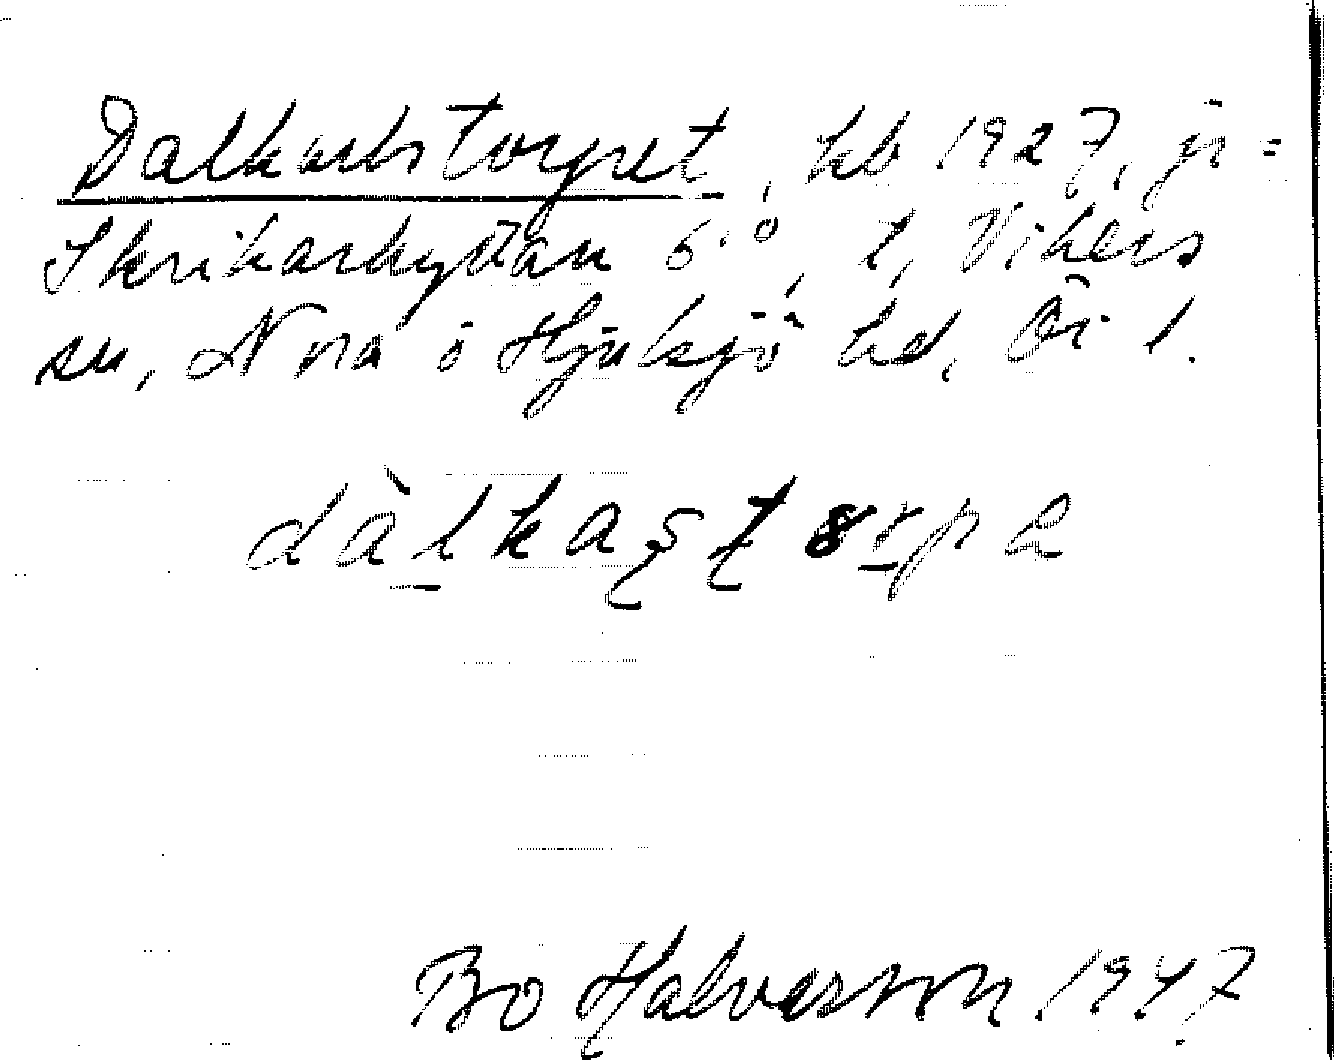 Dalkarlstorpet, hb 1927, jr =
Skrikarhyttan 6:0, l, Vikers
sn, Nora o Hjulsjö hd, Ör l.
dàlkaʂʈɵrpə
Bo Halvarson 1947